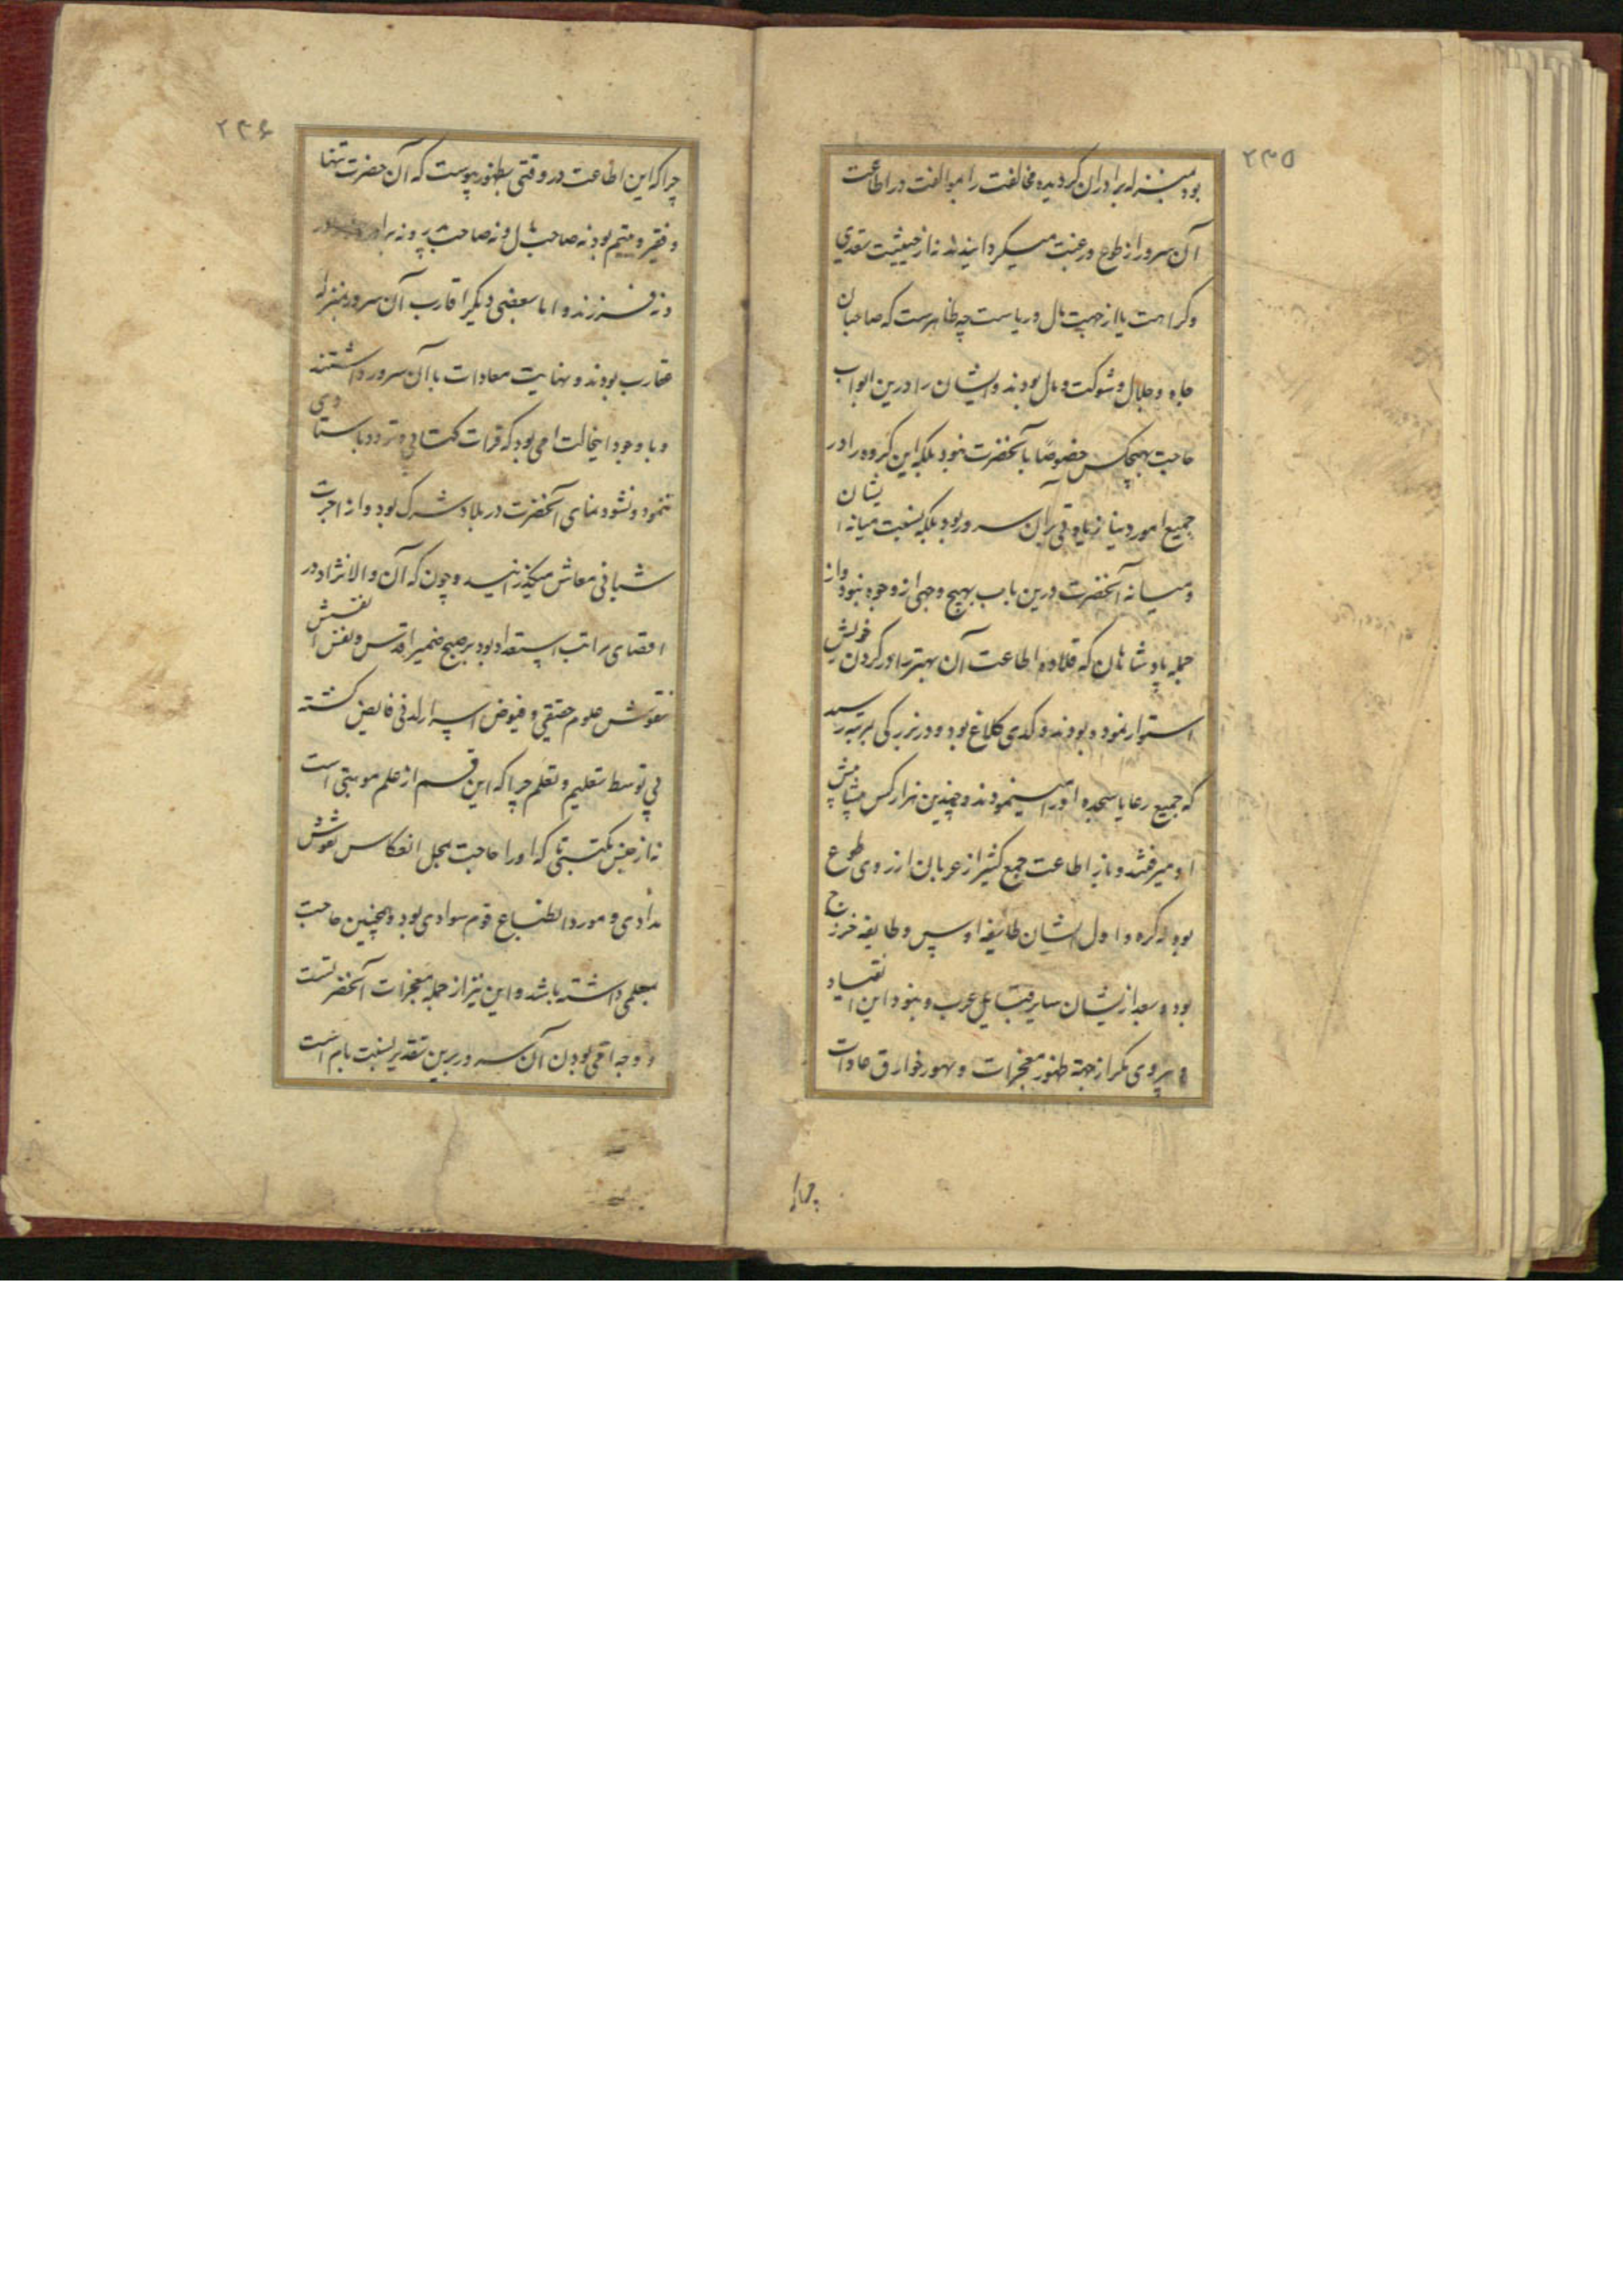 ۲۳۵
بود بمنزله برادران گردیده مخالفت را بموالفت در اطاعت
آن سرور از طوع و رغبت میگردانیدند نه از حیثیت تعدی
و کراهت یا از جهت مال و ریاست چه ظاهرست که صاحبان
جاه و جلال و شوکت و مال بودند و ایشان را درین ابواب
حاجت بهیچکس خصوصا بآنحضرت نبود بلکه این گروه را در
جمیع امور دنیا زیادتی بر آن سرور بود بلکه نسبت میانه ایشان
و میانه آنحضرت درین باب بهیچ وجهی از وجوه نبود و از
جمله پادشاهان که قلاده اطاعت آن بهتر را در گردن خویش
استوار نموده بودند و کدی کلاغ بود و در بزرگی بمرتبه رسید
که جمیع رعایا سجده او را مینمودند و چندین هزار کس پیشاپیش
او میرفتند و باز اطاعت جمع کثیر از عربان از روی طوع
بود نه کره و اول ایشان طایفه اوس و طایفه خزرج
بود و بعد از ایشان سایر قبایل عرب و نبود این انقیاد
و پیروی مگر از جهة ظهور معجزات و بهور خوارق عادات
چرا
۲۳۶
چرا که این اطاعت در وقتی بظهور پیوست که آن حضرت تنها
و فقیر و یتیم بود نه صاحب مال و نه صاحب پدر و نه برادر
و نه فرزند و اما بعضی دیگر اقارب آن سرور بمنزله
عقارب بودند و نهایت معادات با آن سرور داشتند
و با وجود اینحالت امی بود که قرات کتابی و تردد باستادی
ننمود و نشو و نمای آنحضرت در بلاد شرک بود و از اجرت
شبانی معاش میگذرانید و چون که آن والانژاد در
اقصای مراتب استعداد بود بر صبح ضمیر اقدس و نفس انفسش
نقوش علوم حقیقی و فیوض اسرار لدنی فایض گشته
بی توسط تعلیم و تعلم چرا که این قسم از علم موهبتی است
نه از جنس مکتسبی تا که او را حاجت بمحل انعکاس نقوش
مدادی و مورد انطباع رقوم سوادی بود و همچنین حاجت
بمعلمی داشته باشد و این نیز از جمله معجزات آنحضرتست
و وجه امی بودن آن سرور برین تقدیر نسبت بام است